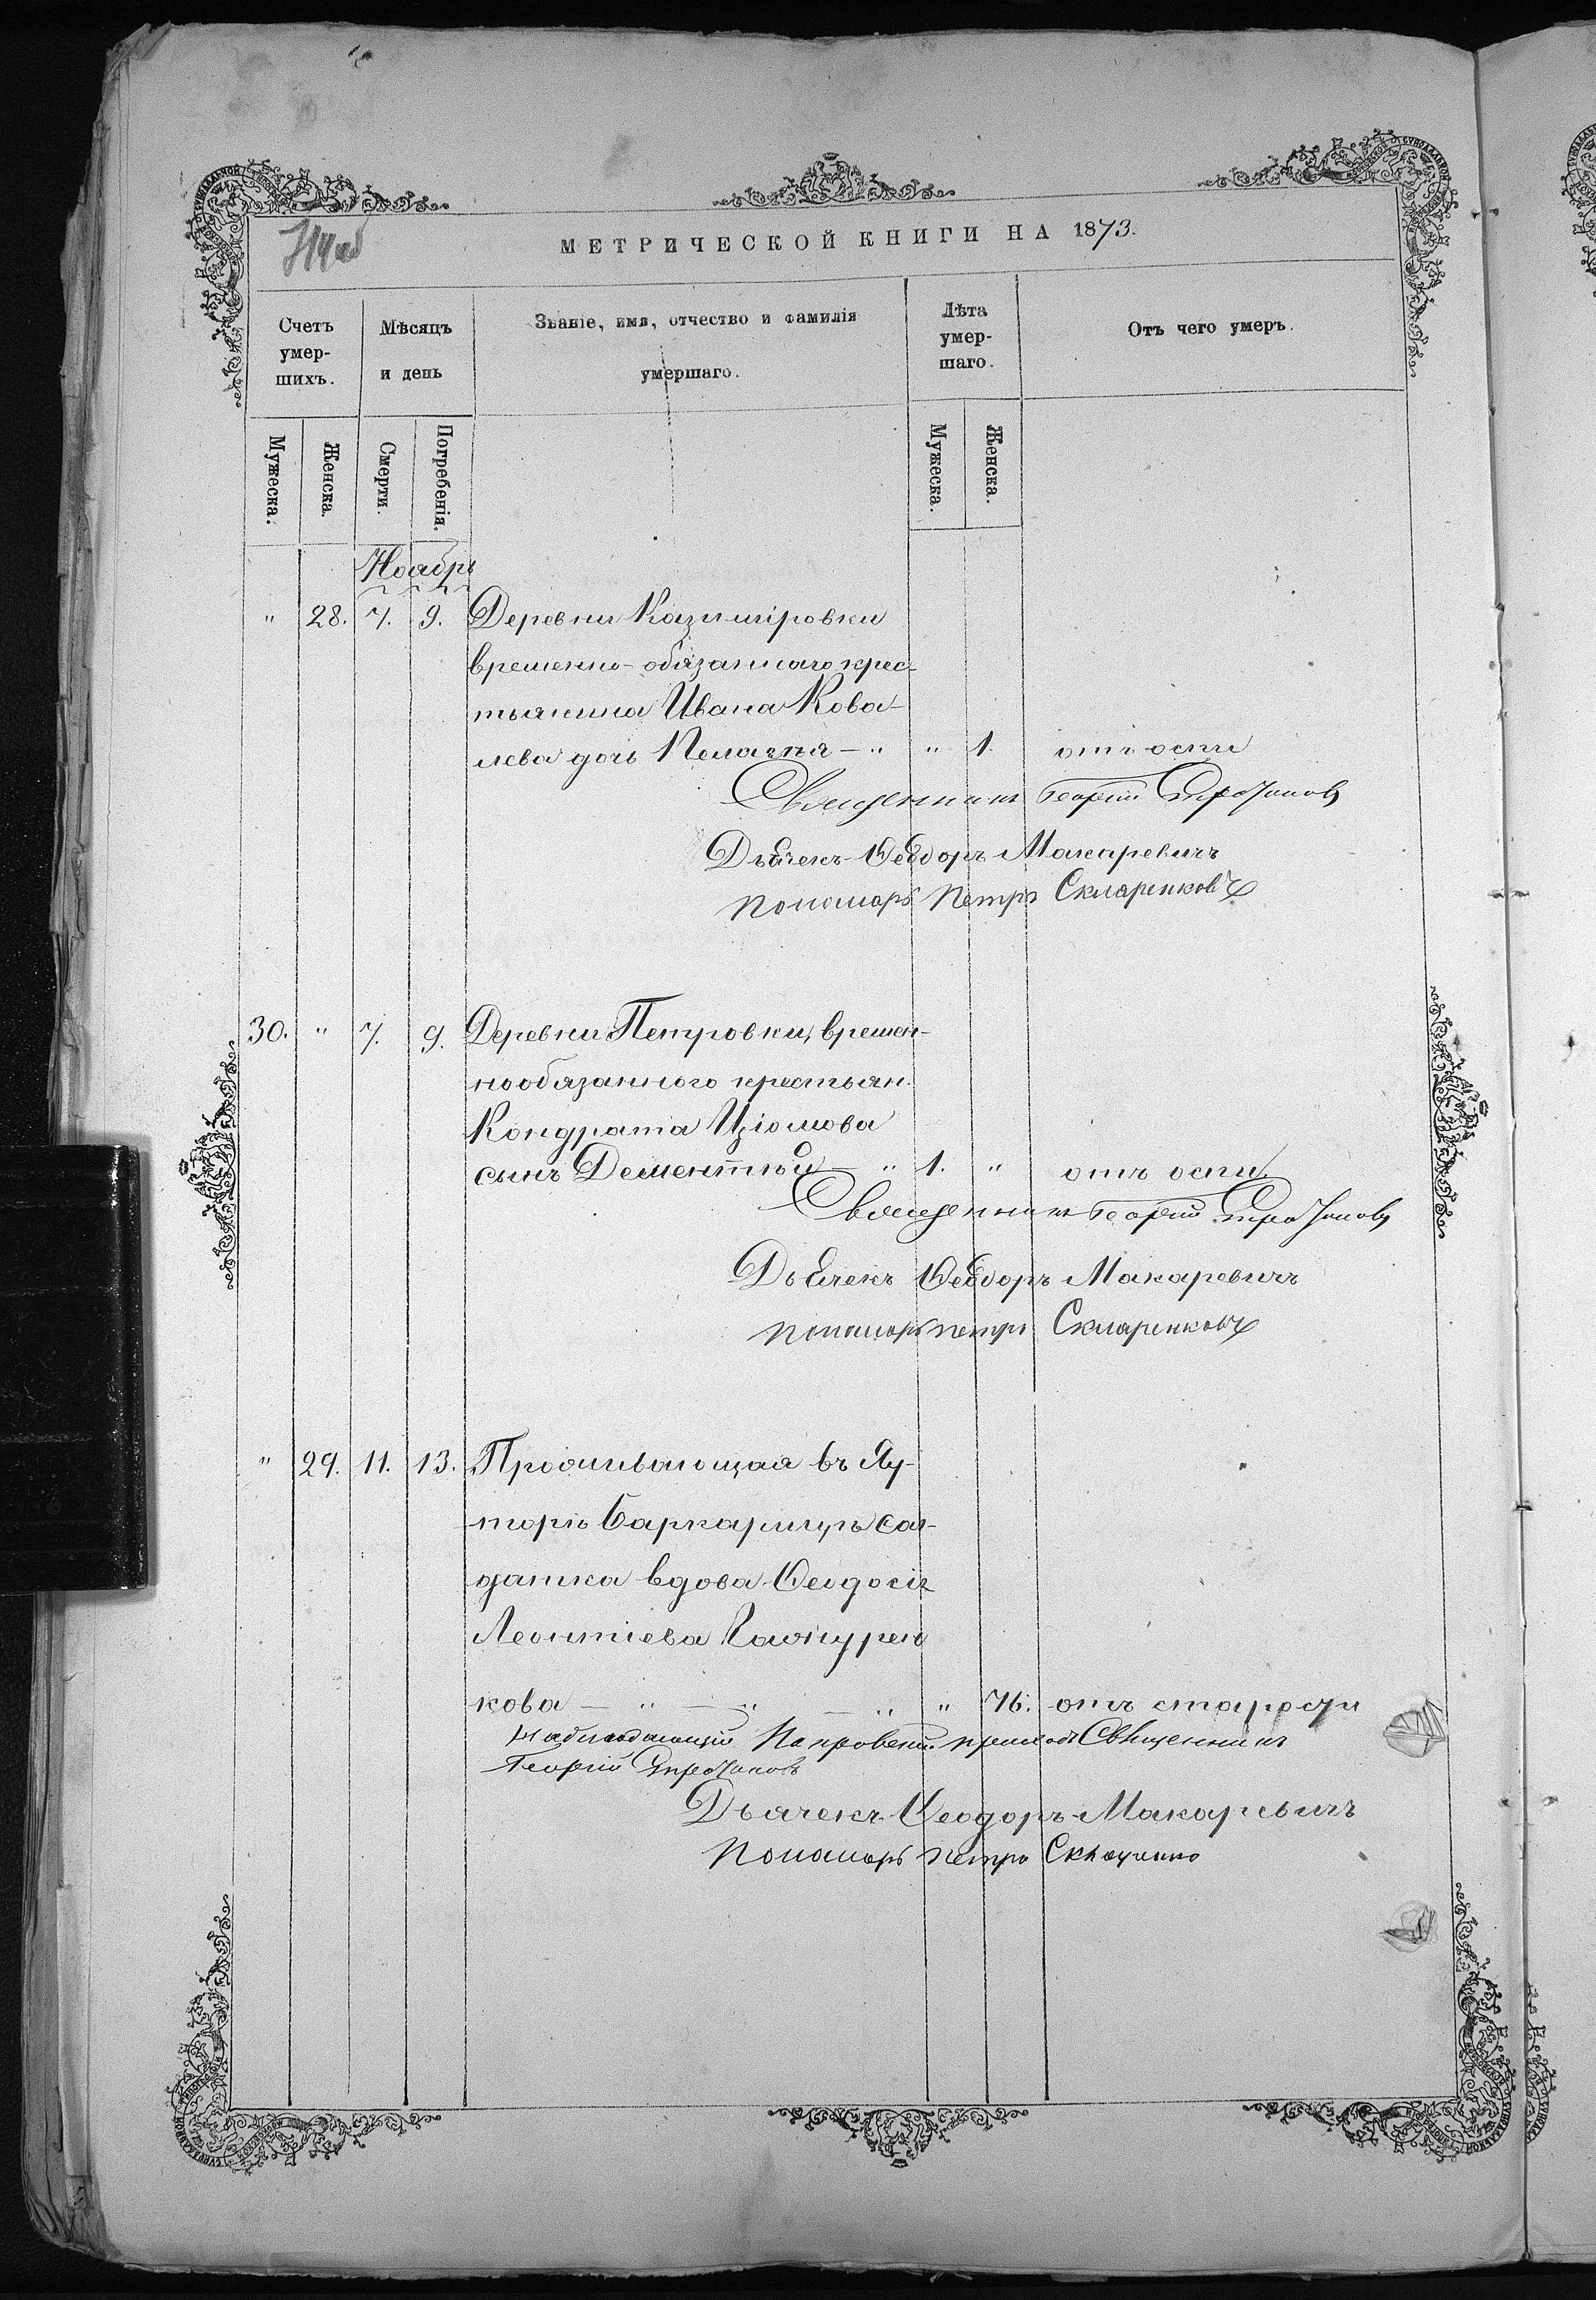 МЕТРИЧЕСКОЙ КНИГИ НА 1873.
Счетъ умер-шихъ.
Мѣсяцъ и день
Званіе, имя, отчество и фамилія умершаго.
Лѣта умер-шаго.
Отъ чего умеръ.
Мужеска.
Женска.
Смерти.
Погребенія.
Мужеска.
Женска.
Ноябрь
" 28. 7. 9. Деревни Казимировки
временно-обязаннаго крес-
тьянина Ивана Кова-
лева дочь Пелагія — " " 1. отъ оспы
Священникъ Георгій
Дьячекъ Ѳеодоръ Макаревичъ
Пономарь Петръ Скларенковъ
30. " 7. 9. Деревни Петровки, времен-
нообязанного крестьян.
Кондрата Изюмова
сынъ Дементій — " 1. " отъ оспы
Священникъ Георгій
Дьячекъ Ѳеодоръ Макаревичъ
Пономарь Петръ Скларенковъ
" 29. 11. 13. Проживающая въ Ху-
торѣ сол-
датка вдова Ѳеодосія
Леонтіева
кова — " — " — " " 76. отъ старости
Наблюдающій Покровскій приходъ Священникъ
Георгій
Дьячекъ Ѳеодоръ Макаревичъ
Пономарь Петръ